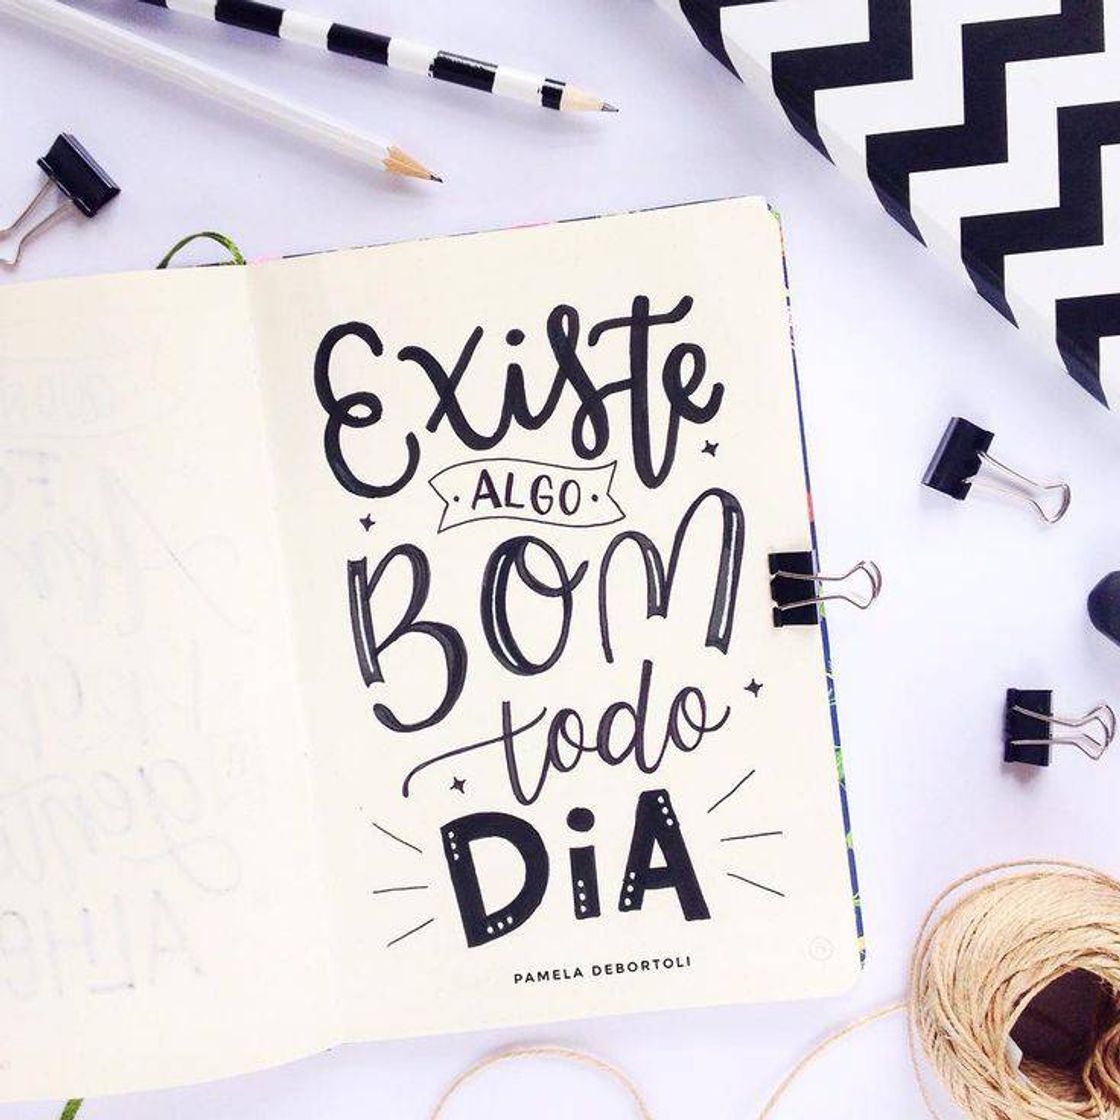 Existe
ALGO
BOM
todo
DiA
PAMELA DEBORTOLI